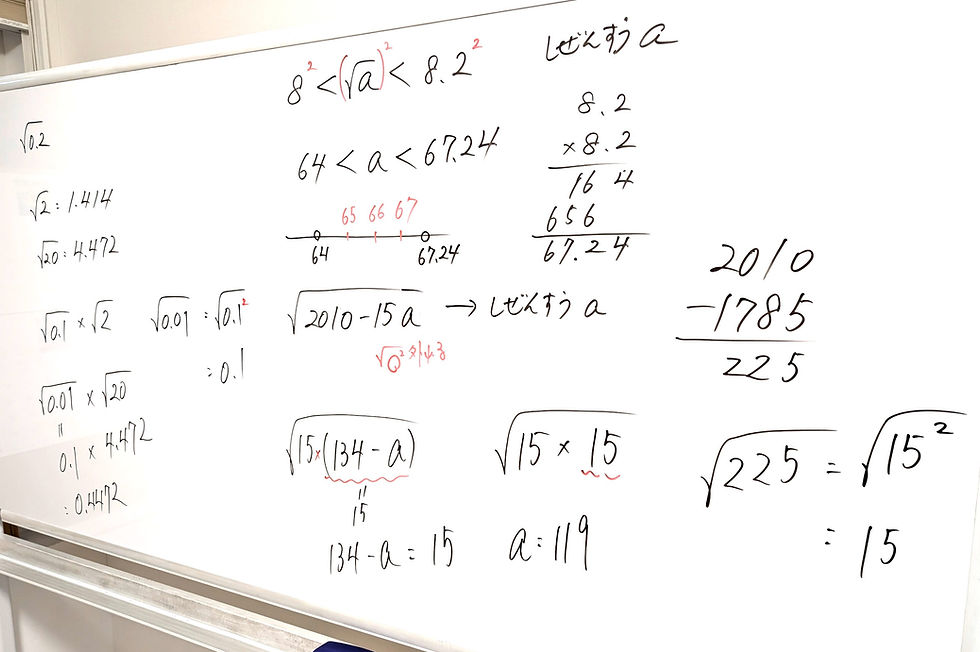 √0.2
√2 = 1.414
√20 = 4.472
√0.1 × √2
√0.01 = √0.1²
= 0.1
√0.01 × √20
=
0.1 × 4.472
= 0.4472
8² < (√a)² < 8.2²
64 < a < 67.24
65 66 67
64 67.24
しぜんすう a
8.2
×8.2
16 4
656
67.24
√2010-15a → しぜんすう a
√○²
√15×(134-a)
=
15
134-a = 15
√15 × 15
a = 119
2010
-1785
225
√225 = √15²
= 15